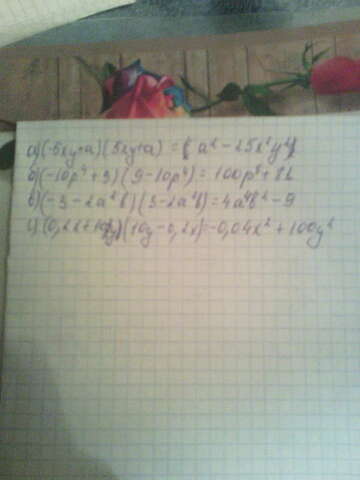 а) (-5xy+a)(5xy+a) = (a² - 25x²y²)
б) (-10p⁴+9)(9-10p⁴) = 100p⁸+81
в) (-3-2a²b)(3-2a²b) = 4a⁴b² - 9
с) (0,2x+10y)(10y-0,2x) = -0,04x² + 100y²